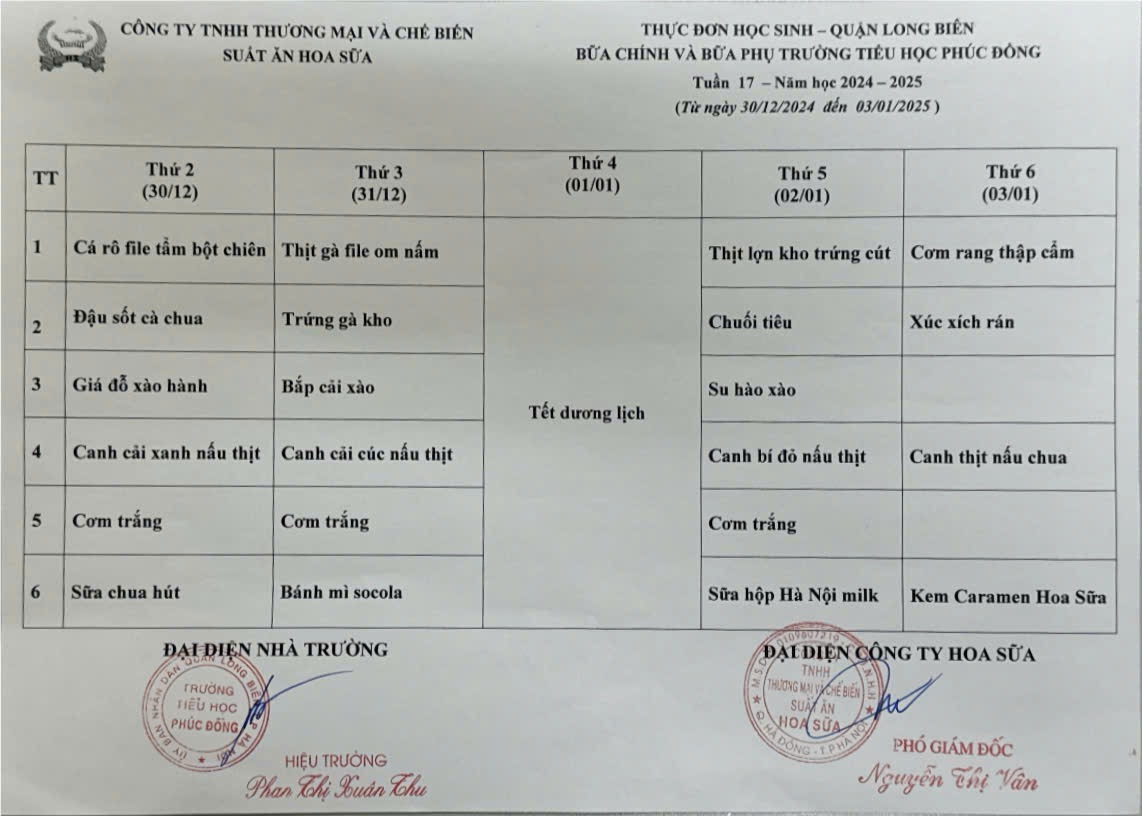 CÔNG TY TNHH THƯƠNG MẠI VÀ CHẾ BIẾN
SUẤT ĂN HOA SỮA
THỰC ĐƠN HỌC SINH – QUẬN LONG BIÊN
BỮA CHÍNH VÀ BỮA PHỤ TRƯỜNG TIỂU HỌC PHÚC ĐỒNG
Tuần 17 – Năm học 2024 – 2025
(Từ ngày 30/12/2024 đến 03/01/2025 )
TT
Thứ 2
(30/12)
Thứ 3
(31/12)
Thứ 4
(01/01)
Thứ 5
(02/01)
Thứ 6
(03/01)
1
Cá rô file tẩm bột chiên
Thịt gà file om nấm
Thịt lợn kho trứng cút
Cơm rang thập cẩm
2
Đậu sốt cà chua
Trứng gà kho
Chuối tiêu
Xúc xích rán
3
Giá đỗ xào hành
Bắp cải xào
Tết dương lịch
Su hào xào
4
Canh cải xanh nấu thịt
Canh cải cúc nấu thịt
Canh bí đỏ nấu thịt
Canh thịt nấu chua
5
Cơm trắng
Cơm trắng
Cơm trắng
6
Sữa chua hút
Bánh mì socola
Sữa hộp Hà Nội milk
Kem Caramen Hoa Sữa
ĐẠI DIỆN NHÀ TRƯỜNG
ỦY BAN NHÂN DÂN QUẬN LONG BIÊN
TRƯỜNG
TIỂU HỌC
PHÚC ĐỒNG
HIỆU TRƯỞNG
Phan Thị Xuân Thu
ĐẠI DIỆN CÔNG TY HOA SỮA
TNHH
THƯƠNG MẠI VÀ CHẾ BIẾN
SUẤT ĂN
HOA SỮA
Q. HÀ ĐÔNG - T.P HÀ NỘI
PHÓ GIÁM ĐỐC
Nguyễn Thị Vân